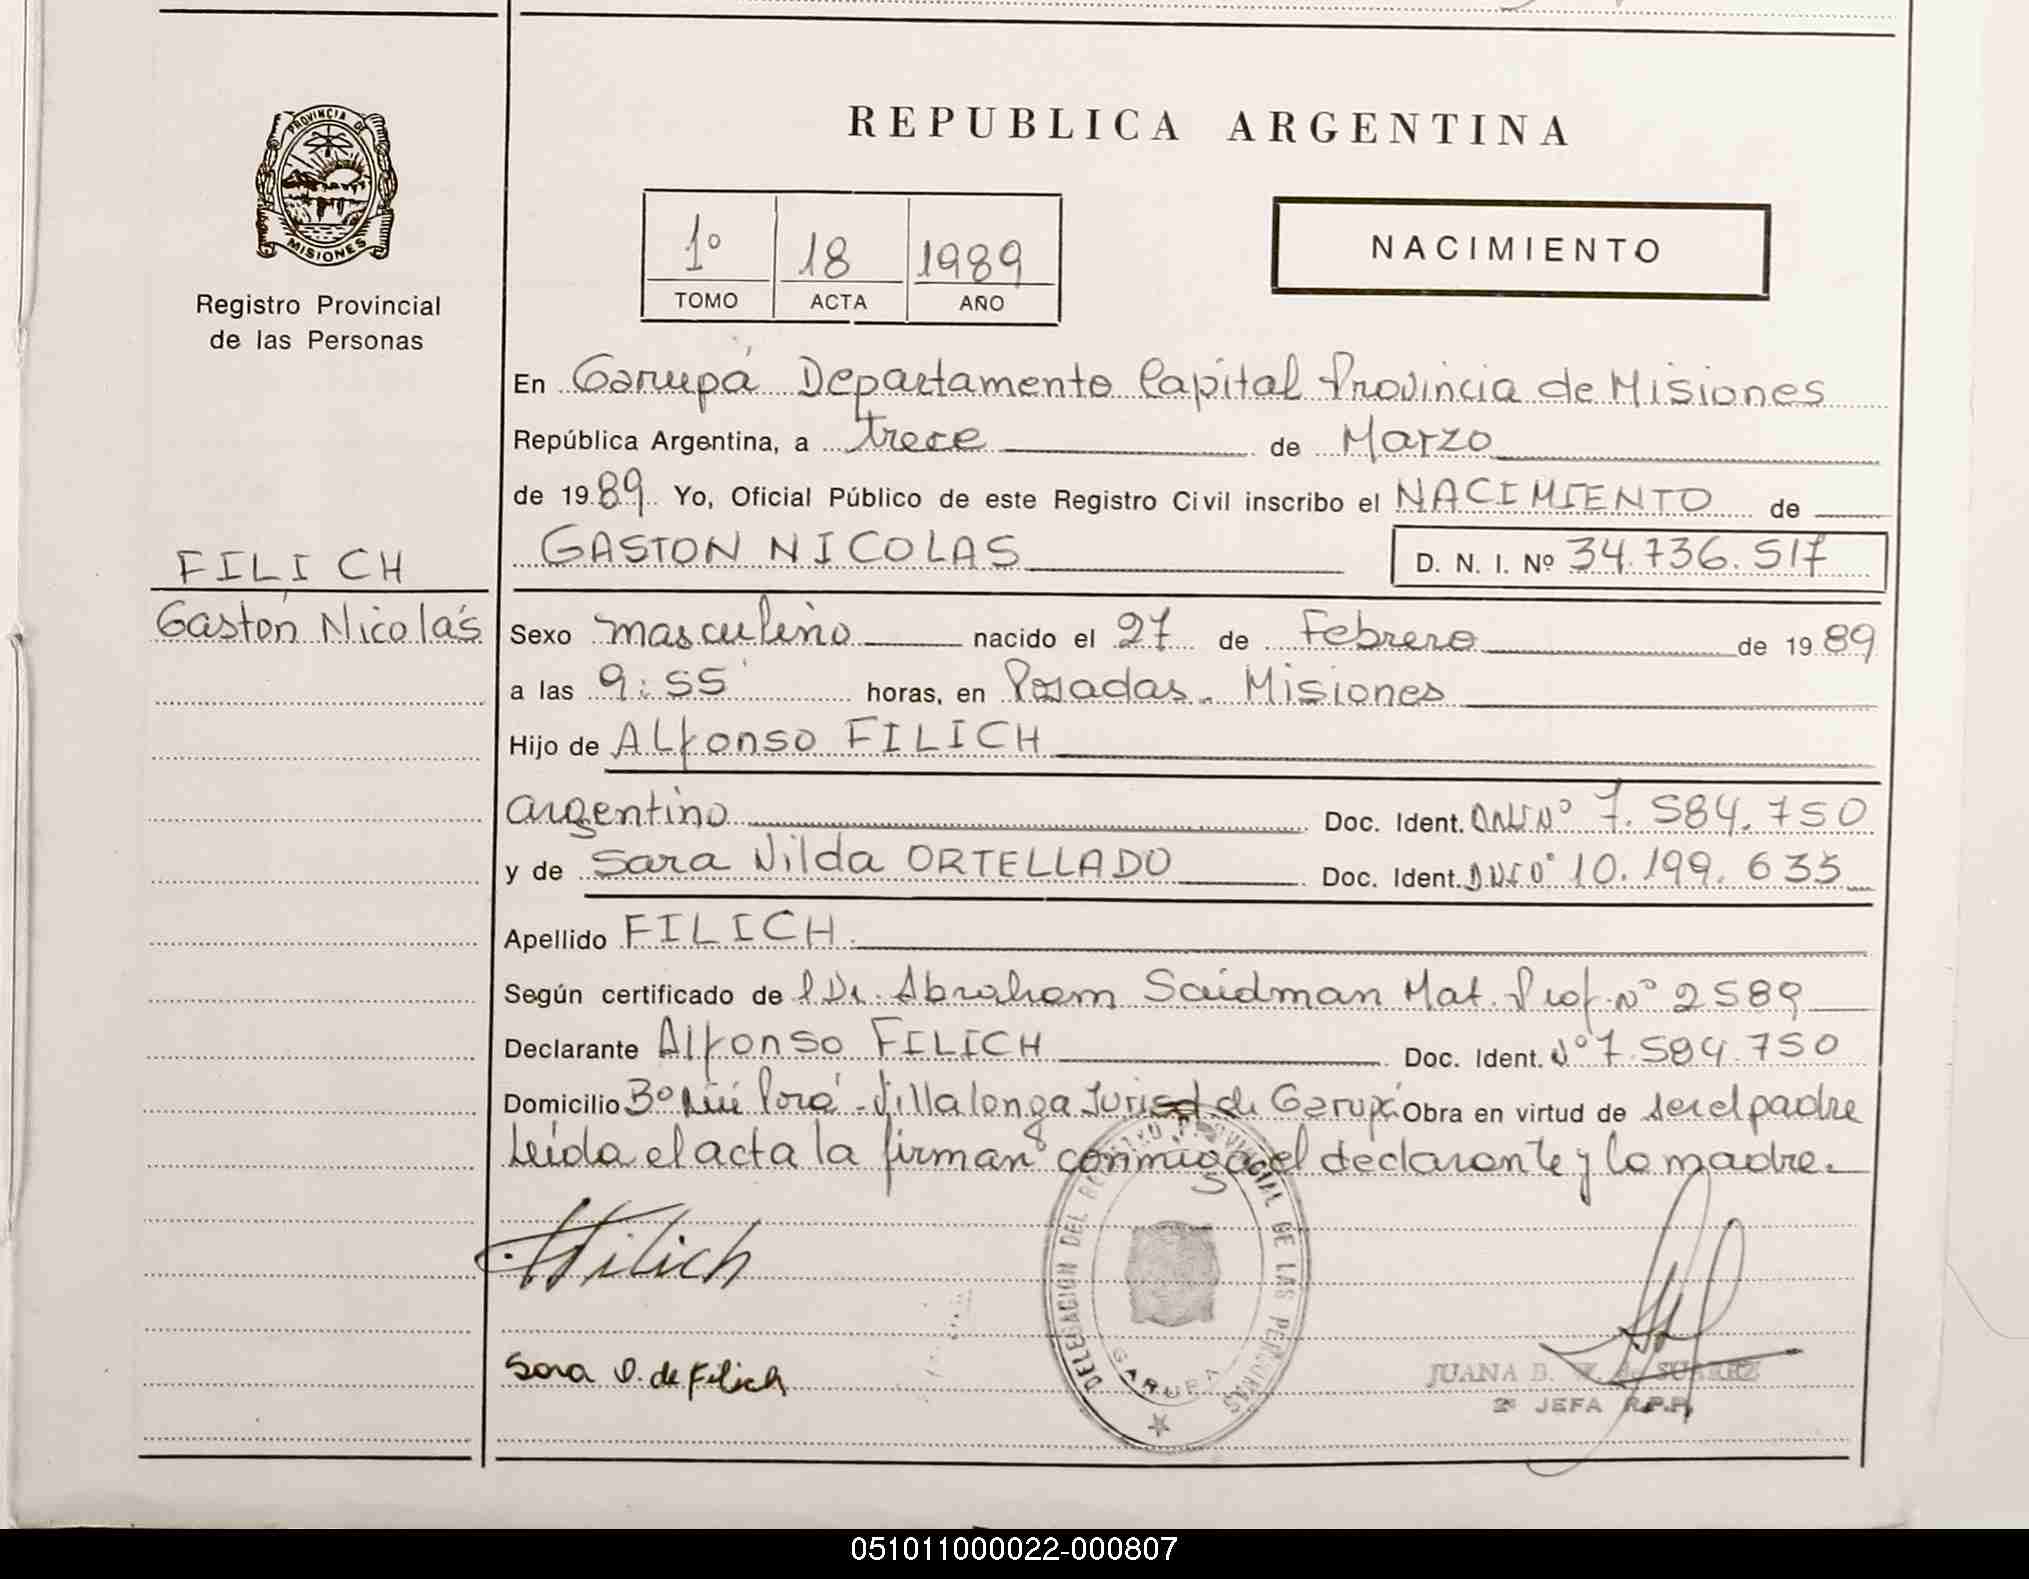 PROVINCIA DE
MISIONES
Registro Provincial
de las Personas
REPUBLICA ARGENTINA
1º 18 1989
TOMO ACTA AÑO
NACIMIENTO
En Garupá Departamento Capital Provincia de Misiones
República Argentina, a trece de Marzo
de 1989 Yo, Oficial Público de este Registro Civil inscribo el NACIMIENTO de
GASTON NICOLAS D. N. I. Nº 34.736.517
FILICH
Gastón Nicolás
Sexo masculino nacido el 27 de Febrero de 1989
a las 9:55 horas, en Posadas. Misiones
Hijo de Alfonso FILICH
argentino Doc. Ident. DNI Nº 7.584.750
y de Sara Nilda ORTELLADO Doc. Ident. DNI Nº 10.199.635
Apellido FILICH.
Según certificado de l Dr. Abraham Saidman Mat. Prof. Nº 2589
Declarante Alfonso FILICH Doc. Ident. Nº 7.584.750
Domicilio Bº Ñu Porá - Villalonga Jurisd de Garupá Obra en virtud de ser el padre
Leída el acta la firman conmigo el declarante y la madre.
Filich
DELEGACION DEL REGISTRO PROVINCIAL DE LAS PERSONAS
GARUPA
Sara O. de Filich
JUANA B. SUAREZ
2º JEFA R.P.P.
051011000022-000807